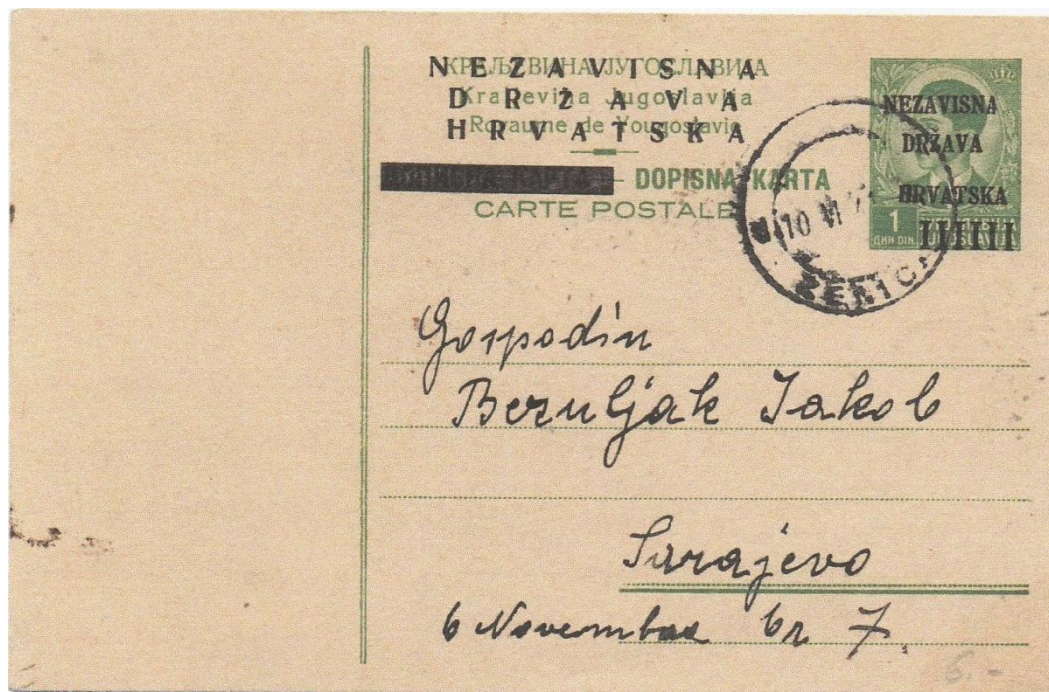 NEZAVISNA
DRŽAVA
HRVATSKA
КРАЉЕВИНА ЈУГОСЛАВИЈА
Kraljevina Jugoslavija
Royaume de Yougoslavie
DOPISNA KARTA
CARTE POSTALE
NEZAVISNA
DRŽAVA
HRVATSKA
1
ДИН DIN.
JUGOSLAVIJA
10 VI
ZENICA
Gospodin
Bezuljak Jakob
Sarajevo
6 Novembra br 7.
6.-